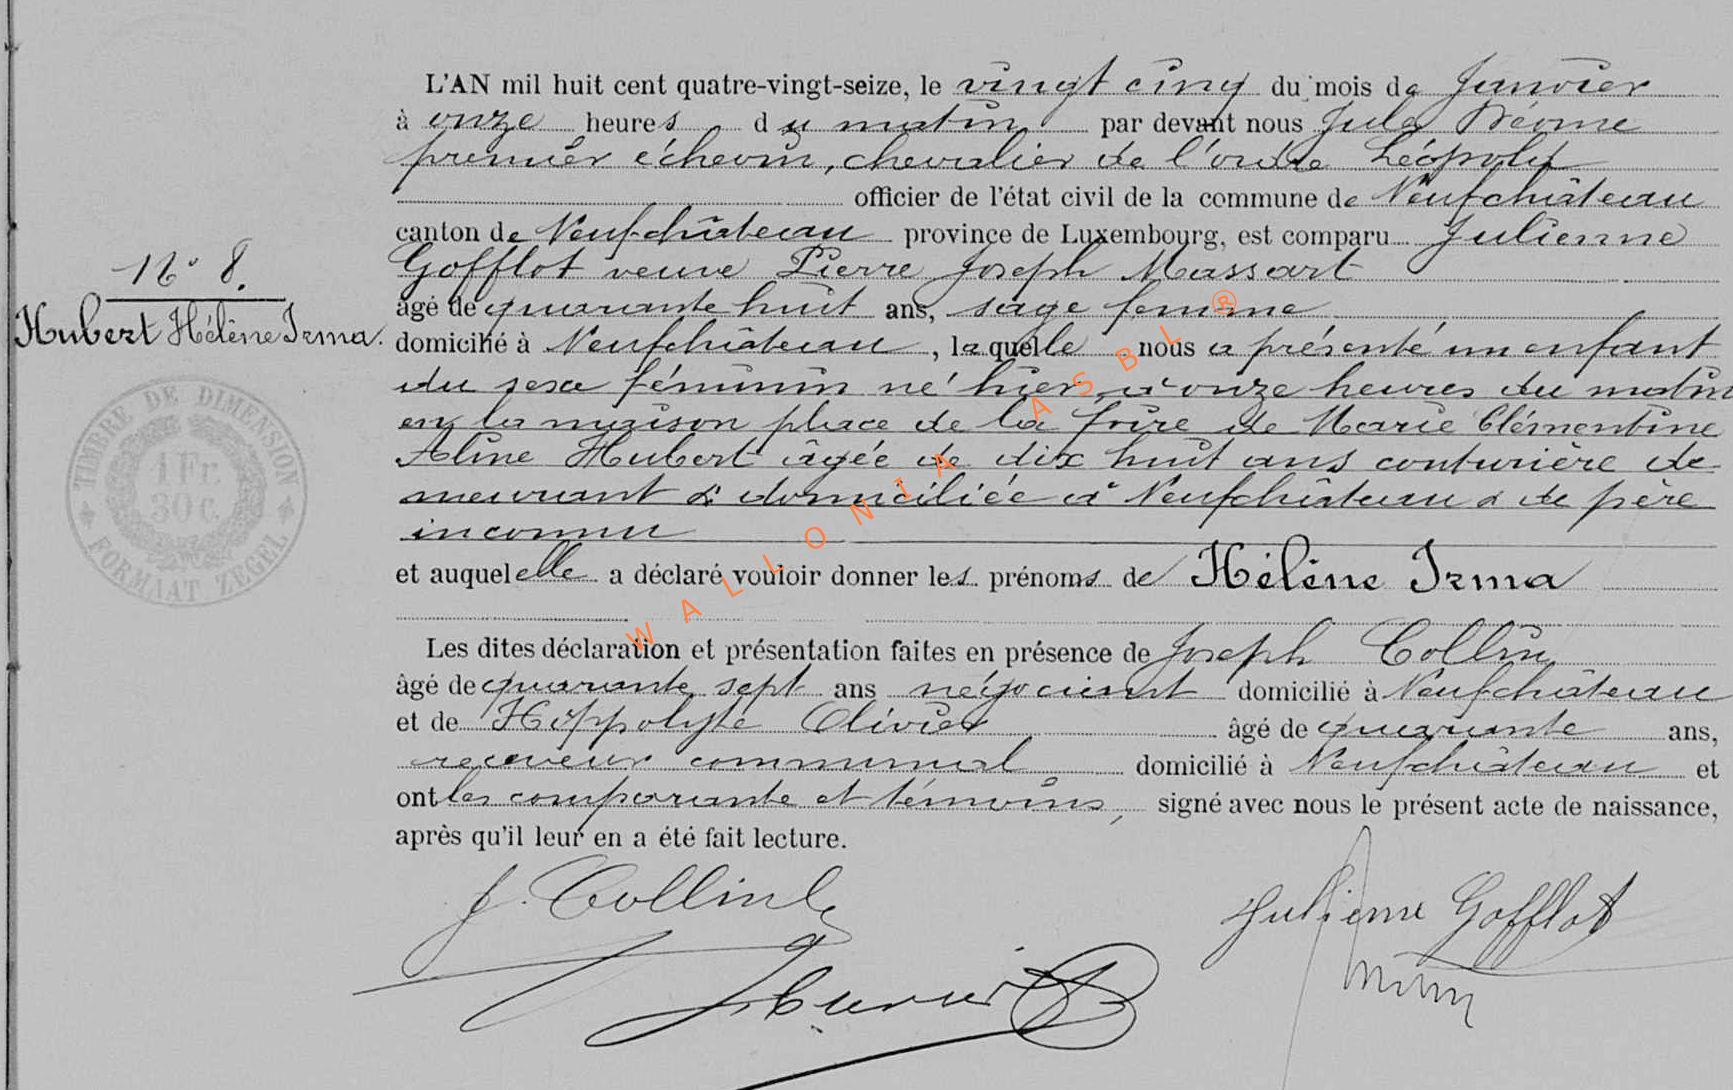 L'AN mil huit cent quatre-vingt-seize, le vingt cinq du mois de Janvier
à onze heures du matin par devant nous Jules
premier échevin, chevalier de l'ordre Léopold
officier de l'état civil de la commune de Neufchâteau
canton de Neufchâteau province de Luxembourg, est comparu Julienne
Gofflot veuve Pierre Joseph Massart
âgé de quarante huit ans, sage femme
N° 8.
Hubert Hélène Irma.
domicilié à Neufchâteau, laquelle nous a présenté un enfant
du sexe féminin né hier, à onze heures du matin
en la maison place de la foire de Marie Clémentine
Aline Hubert âgée de dix huit ans couturière de
meurant & domiciliée à Neufchâteau & de père
inconnu
et auquel elle a déclaré vouloir donner les prénoms de Hélène Irma
Les dites déclaration et présentation faites en présence de Joseph Collin
âgé de quarante sept ans négociant domicilié à Neufchâteau
et de Hippolyte Olivier âgé de quarante ans,
receveur communal domicilié à Neufchâteau et
ont les comparante et témoins, signé avec nous le présent acte de naissance,
après qu'il leur en a été fait lecture.
TIMBRE DE DIMENSION
1 Fr.
30 c.
FORMAAT ZEGEL
WALLONIA ASBL ®
J. Collin
Julienne Gofflot